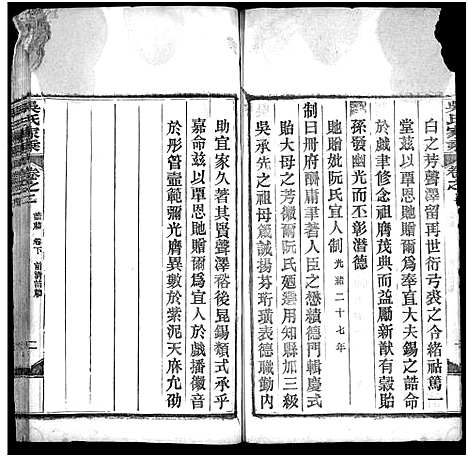 吳氏家乘
卷之
白之芳聲澤留再世衍弓裘之令緒祜篤一
堂茲以覃恩貤贈爾爲奉直大夫錫之誥命
於戲聿修念祖膺茂典而益勵新猷有穀貽
孫發幽光而不彰潛德
貤贈妣阮氏宜人制 光緒二十七年
制曰冊府酬庸聿著人臣之懋績德門輯慶式
貽大母之芳徽爾阮氏廼選用知縣加三級
吳承之祖母箴誠揚芬珩璜表德職勤內
助宜家久著其賢聲澤裕後昆錫類式承乎
嘉命茲以覃恩貤贈爾爲宜人於戲播徽音
於彤管壼範彌光膺異數於紫泥天庥允劭
吳氏家乘
卷之二
誥勅 卷下 前清誥勅